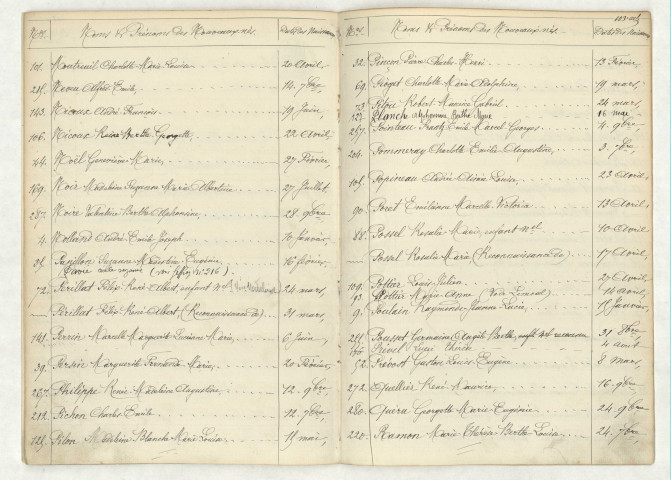 Nos. Noms & Prénoms des Nouveaux-nés. Dates des Naissances
101. Montreuil Charlotte Marie Louise 20 Avril,
219. Neveu Alfred Emile, 14. 7bre,
143. Nicoux André François, 19 Juin,
106. Nicoux Reine Berthe Georgette, 22 Avril,
44. Noël Geneviève Marie, 27 Février,
169. Noir Madeleine Marie Albertine, 27 Juillet
287. Noire Valentine Berthe Alphonsine, 28. 9bre,
4. Nollard André Emile Joseph, 10 Janvier,
Papillon Suzanne Eugénie, 16 février,
72. Périllat Félix René Albert, enfant 24 mars,
Périllat Félix René Albert (Reconnaissance de) 31 mars,
141. Marcelle Marguerite Marie, 6 Juin,
39. Persin Marguerite Fernande Marie, 20 Février,
267. Philippe Renée Madeleine Augustine, 12. 9bre,
212. Pichon Charles Emile 12. 7bre,
123. Pilon Madeleine Blanche Marie Louise 11 mai,
Nos. Noms & Prénoms des Nouveaux-nés. Dates des Naissances
32. Pinson Pierre Charles Henri 13 Février,
69. Charlotte Marie Delphine, 19 mars,
73. Robert Maurice Gabriel 24 mars,
Planche Berthe 16 mai
257. Pointeau Emile Marcel Georges 4. 9bre,
204. Pommeray Charlotte Emilie Augustine, 3. 7bre,
105. Popineau Louise, 23 Avril,
90. Poret Emilienne Marcelle Victoria 13 Avril
88. Possel Rosalie Marie, enfant nel 10 Avril
Possel Rosalie Marie (Reconnaissance de) 17 Avril
109. Pottier Louis Julien 27 Avril
93. Pottier 14 avril
9. Poulain Raymonde Jeanne Lucie, 15 Janvier,
Pousset Germaine Angèle Berthe, 31 8bre
Prével 4 août
52. Prévost Gaston Louis Eugène 8 mars,
272. Quellier René Maurice, 16. 9bre,
280. Quéra Georgette Marie Eugénie 24. 9bre
220. Ramon Marie Thérèse Berthe Louise 24. 7bre